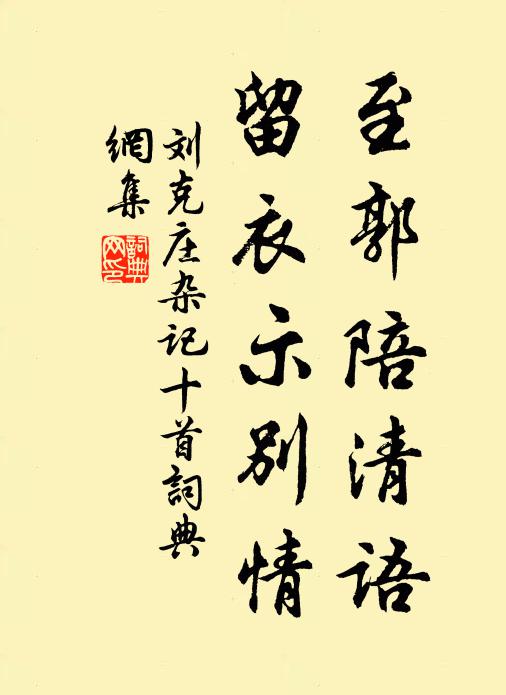 至郭陪清语
留衣示别情
刘克庄杂记十首詞典
網集
詞典
网印